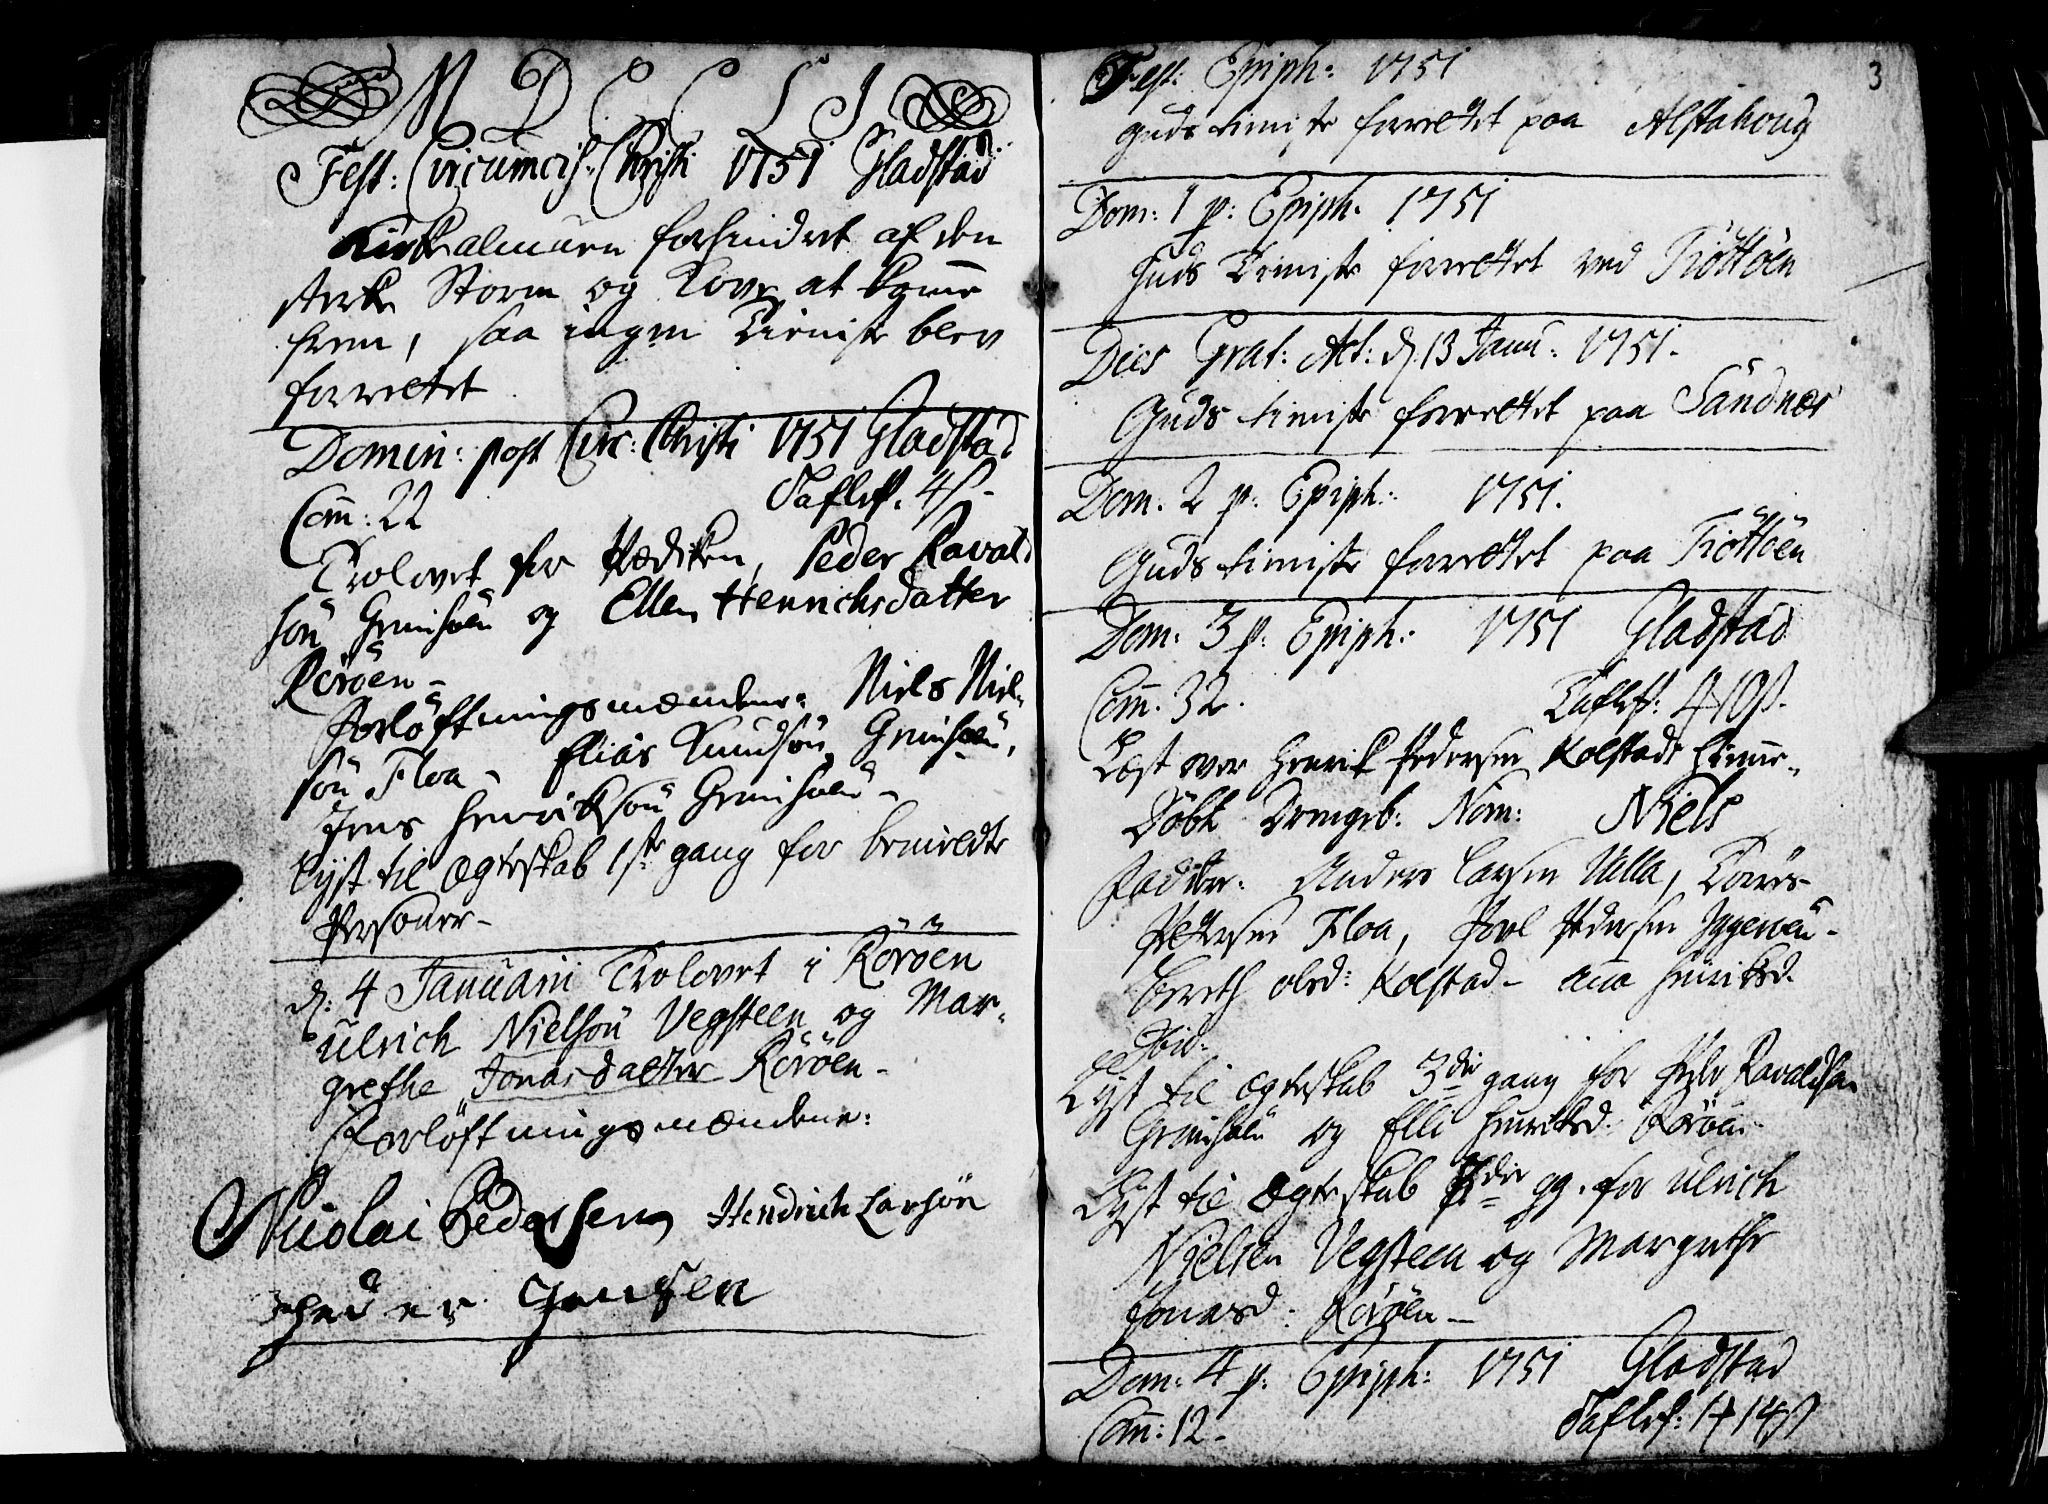 MDCCLI
Fest: Circumcis: Christi 1751 Gladstad
Kirkealmuen forhindret af den
sterke Storm og Kove at komme
frem, saa ingen Tieniste blev
forrettet
Domin: post Circ: Christi 1751 Gladstad
Com: 22 Taflep. 4 ß
Trolovet for Prædiken, Peder Ravald
søn Grimsøen og Ellen Henrichsdatter
Rørøen-
Forløftningsmændene: Niels Niel-
søn Floa - Elias Knudsøn Grimsøen,
Jens Henriksøn Grimsøen -
Lyst til Ægteskab 1ste gang for bemeldte
Personer-
d: 4 Januarii Trolovet i Rørøen
Ulrich Nielsøn Vegsteen og Mar-
grethe Jonasdatter Rørøen-
Forløftningsmændene:
Nicolai Pedersen Hendrich Larsøn
peder Jensen
3
Fest: Epiph: 1751
Guds tieniste forrettet paa Alstahoug
Dom: 1 p: Epiph. 1751
Guds Tieniste forrettet ved Tiøttøen
Dies Grat: Act: d. 13 Janu: 1751.
Guds tieniste forrettet paa Sandnes
Dom. 2 p: Epiph: 1751.
Guds tieniste forrettet paa Tiøttøen
Dom: 3 p: Epiph: 1751 Gladstad
Com. 32. Taflep: 4 10ß.
Læst over Henrik Pedersen Kolstads Hustrue-
Døbt Drengeb: Nom: Niels
Faddere: Anders Larsen Ulla, Tørres-
Petersen Floa, Poel Pedersen Yggenøen-
Bereth olsd: Kolstad- Ana Henriksd.
Ibid:
Lyst til Ægteskab 3die gang for Peder Ravaldsøn
Grimsøen og Elli Henriksd: Rørøen.
Lyst til Ægteskab die gg. for Ulrich
Nielsen Vegsteen og Margrethe
Jonasd: Rørøen-
Dom: 4 p: Epiph: 1751 Gladstad
Com: 12- Taflep: 14ß